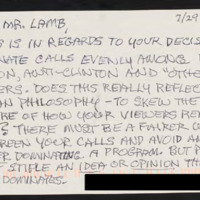 MR. LAMB, 7/29
IS IN REGARDS TO YOUR DECIS
NATE CALLS EVENLY AMONG
ON, ANTI-CLINTON AND "OTHE
ERS. DOES THIS REALLY REFLEC
ON PHILOSOPHY - TO SKEW THE
OF HOW YOUR VIEWERS RE
THERE MUST BE A FAIRER
EEN YOUR CALLS AND AVOID AN
ER DOMINATING A PROGRAM. BUT
STIFLE AN IDEA OR OPINION TH
DOMINATES.